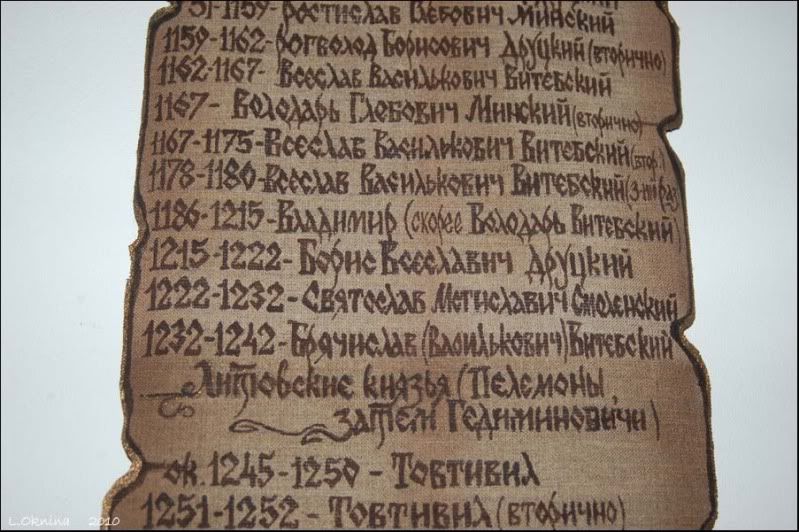 1151-1159-Ростислав Глебович Минский
1159-1162-Рогволод Борисович Друцкий (вторично)
1162-1167-Всеслав Василькович Витебский
1167- Володарь Глебович Минский (вторично)
1167-1175-Всеслав Василикович Витебский (втор.)
1178-1180-Всеслав Василькович Витебский (3-ий раз)
1186-1215-Владимир (скорее Володарь Витебский)
1215-1222-Борис Всеславич Друцкий
1222-1232-Святослав Мстиславич Смоленский
1232-1242-Брячислав (Василькович) Витебский
Литовские князья (Пелемоны,
затем Гедиминовичи)
ок. 1245-1250 - Товтивил
1251-1252 - Товтивил (вторично)
L.Oknina 2010